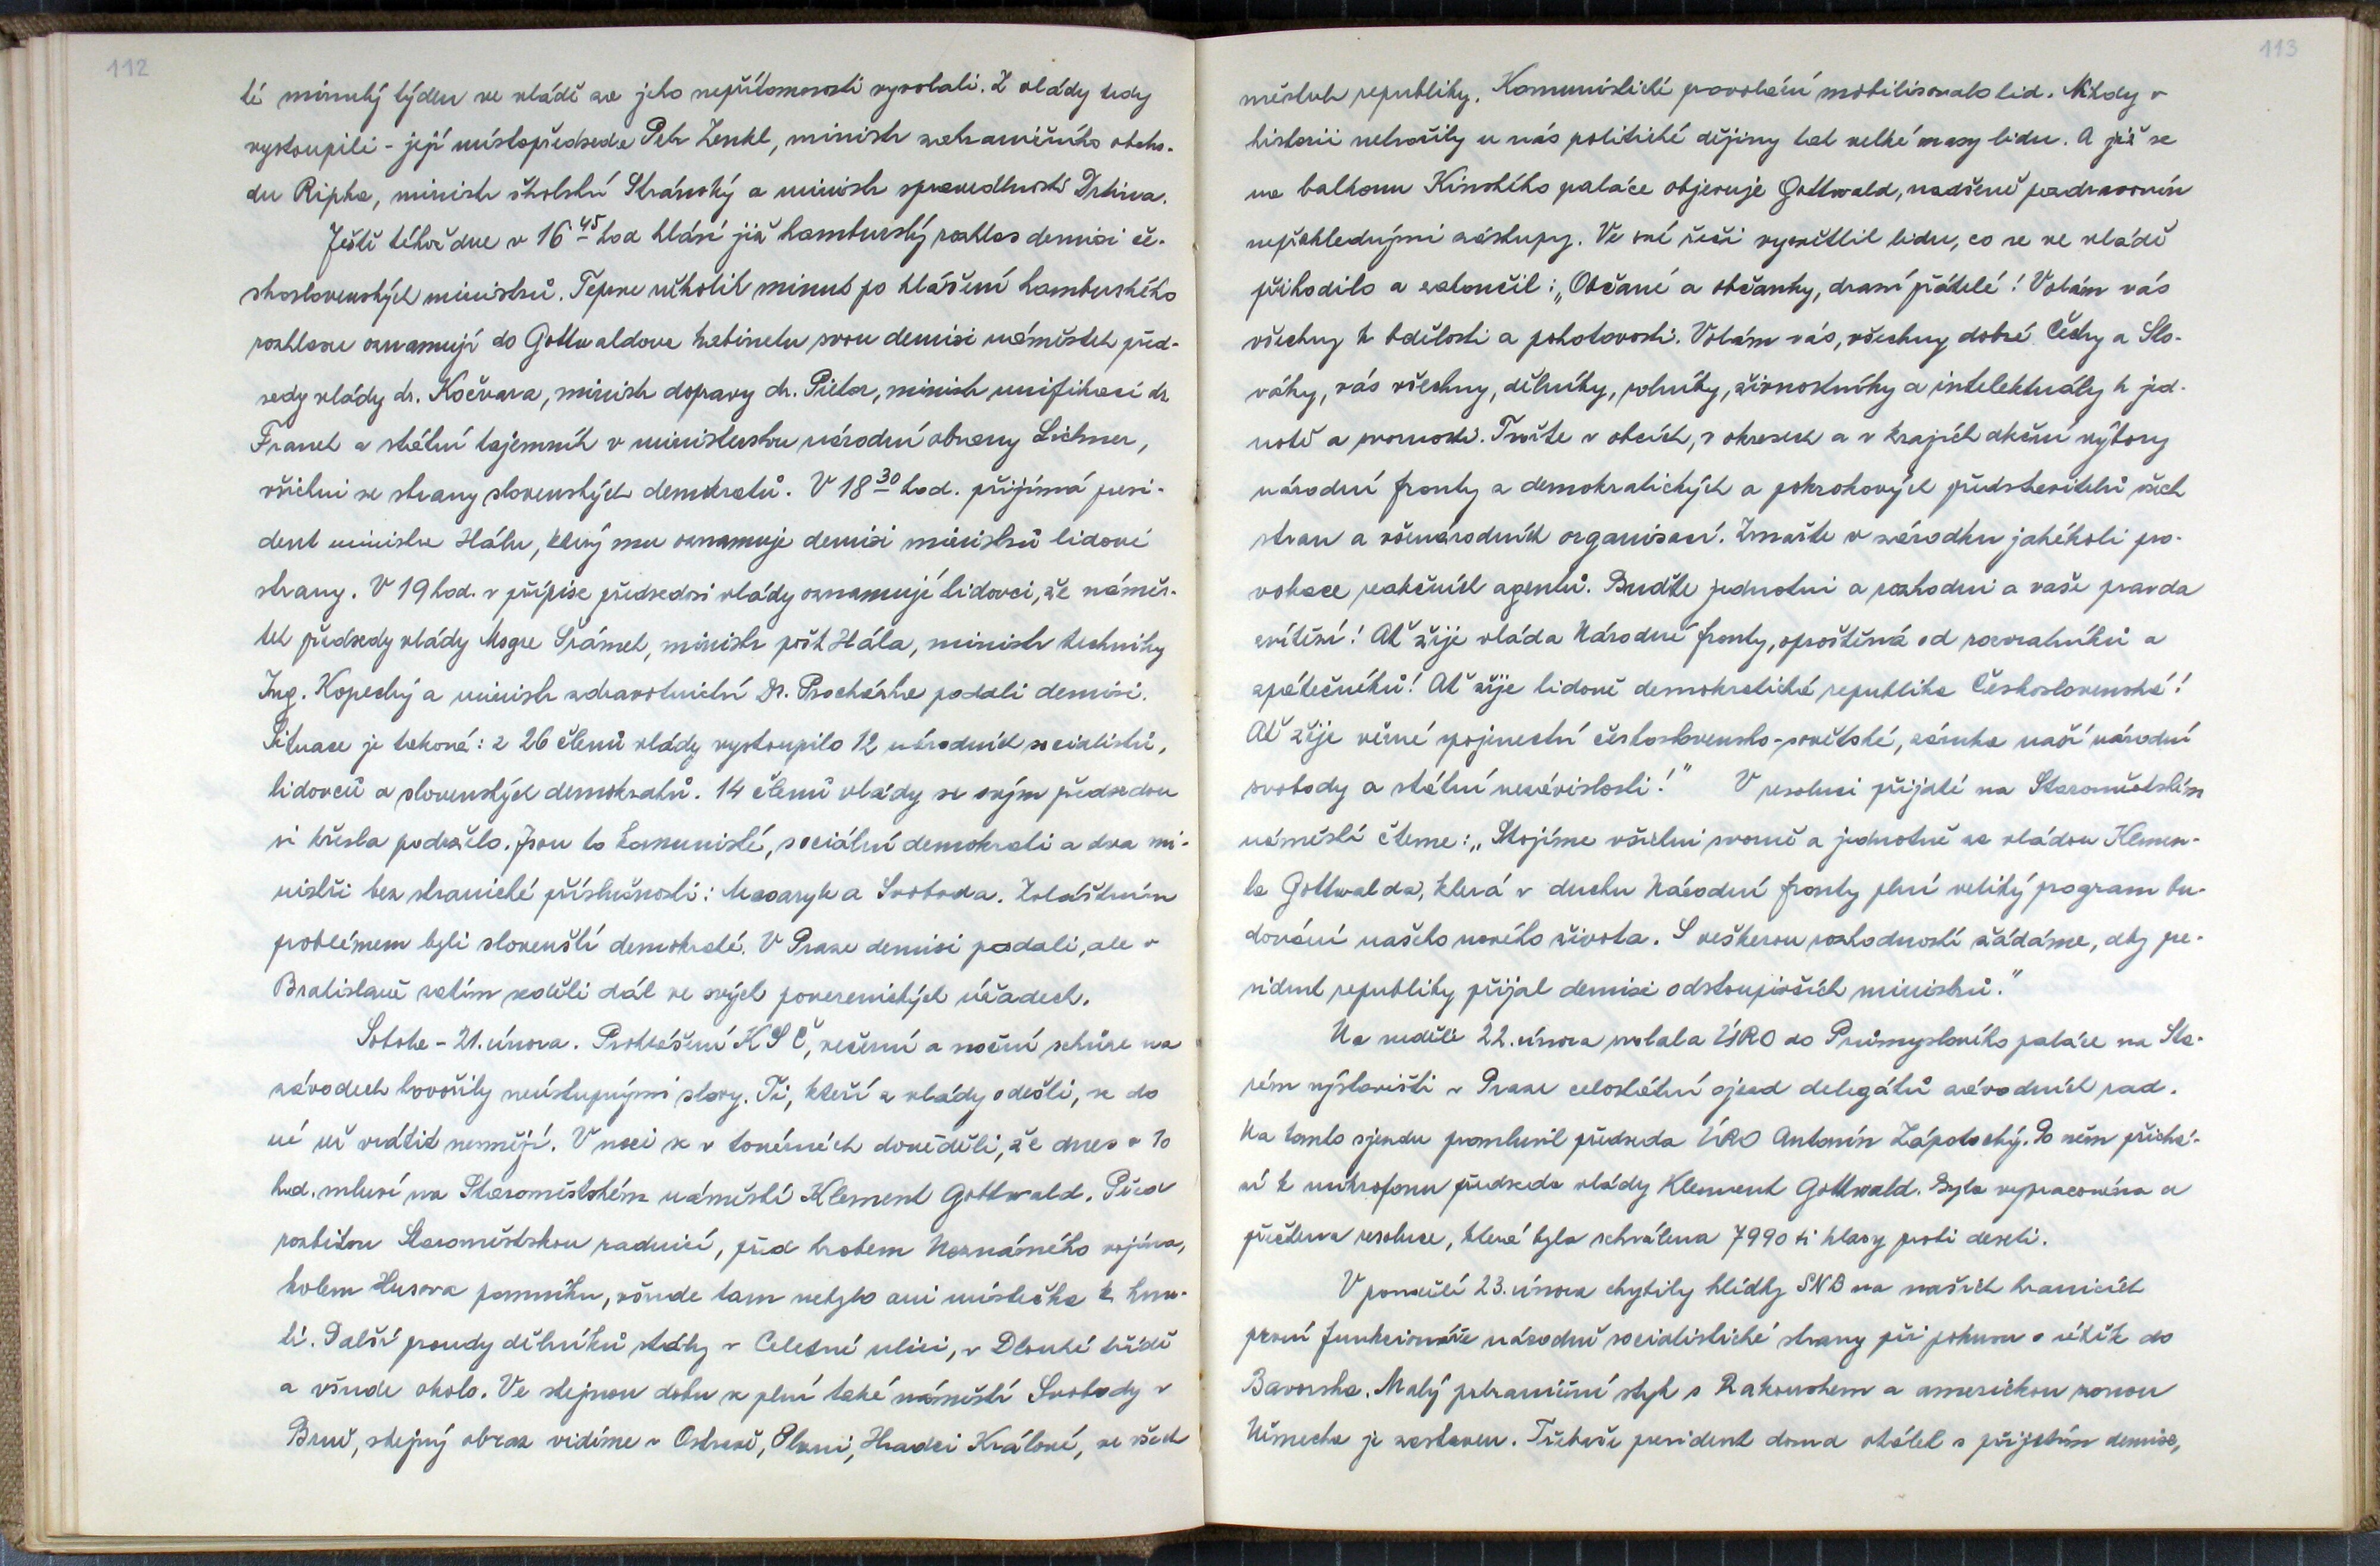 112
té minulý týden ve vládě za jeho nepřítomnosti vyvolali. Z vlády tedy
vystoupili - její místopředseda Petr Zenkl, ministr zahraničního obcho-
du Ripka, ministr školství Stránský a ministr spravedlnosti Drtina.
Ještě téhož dne v 16 45 hod hlásí již hamburský rozhlas demisi če-
skoslovenských ministrů. Teprve několik minut po hlášení hamburského
rozhlasu oznamují do Gottwaldova kabinetu svou demisi náměstek před-
sedy vlády dr. Kočvara, ministr dopravy dr. Pietor, ministr unifikací dr.
Franek a státní tajemník v ministerstvu národní obrany Lichner,
všichni ze strany slovenských demokratů. V 18 30 hod. přijímá presi-
dent ministra Hálu, který mu oznamuje demisi ministrů lidové
strany. V 19 hod. v přípise předsedovi vlády oznamují lidovci, že náměs-
tek předsedy vlády Msgre Šrámek, ministr pošt Hála, ministr techniky
Ing. Kopecký a ministr zdravotnictví Dr. Procházka podali demisi.
Situace je taková: z 26 členů vlády vystoupilo 12 národních socialistů,
lidovců a slovenských demokratů. 14 členů vlády se svým předsedou
si křesla podrželo. Jsou to komunisté, sociální demokrati a dva mi-
nistři bez stranické příslušnosti: Masaryk a Svoboda. Zvláštním
problémem byli slovenští demokraté. V Praze demisi podali, ale v
Bratislavě zatím seděli dál ve svých poverenických úřadech.
Sobota - 21. února. Prohlášení KSČ, večerní a noční schůze na
závodech hovořily neústupnými slovy. Ti, kteří z vlády odešli, se do
ní už vrátit nesmějí. V noci se v továrnách dověděli, že dnes v 10
hod. mluví na Staroměstském náměstí Klement Gottwald. Před
rozbitou Staroměstskou radnicí, před hrobem Neznámého vojína,
kolem Husova pomníku, všude tam nebylo ani místečka k hnu-
tí. Další proudy dělníků stály v Celetné ulici, v Dlouhé třídě
a všude okolo. Ve stejnou dobu se plní také náměstí Svobody v
Brně, stejný obraz vidíme v Ostravě, Plzni, Hradci Králové, ve všech
113
městech republiky. Komunistické povolání mobilisovalo lid. Nikdy v
historii netvořily u nás politické dějiny tak velké masy lidu. A již se
na balkonu Kinského paláce objevuje Gottwald, nadšeně pozdravován
nepřehlednými zástupy. Ve své řeči vysvětlil lidu, co se ve vládě
přihodilo a zakončil: „Občané a občanky, drazí přátelé! Volám vás
všechny k bdělosti a pohotovosti. Volám vás, všechny dobré Čechy a Slo-
váky, vás všechny, dělníky, rolníky, živnostníky a intelektuály k jed-
notě a svornosti. Tvořte v obcích, v okresech a v krajích akční výbory
národní fronty z demokratických a pokrokových představitelů všech
stran a všenárodních organisací. Zmařte v zárodku jakékoli pro-
vokace reakčních agentů. Buďte jednotni a rozhodni a vaše pravda
zvítězí! Ať žije vláda Národní fronty, oproštěná od rozvratníků a
zpátečníků! Ať žije lidově demokratická republika Československá!
Ať žije věrné spojenectví československo-sovětské, záruka naší národní
svobody a státní nezávislosti!" V resoluci přijaté na Staroměstském
náměstí čteme: „Stojíme všichni svorně a jednotně za vládou Klemen-
ta Gottwalda, která v duchu Národní fronty plní veliký program bu-
dování našeho nového života. S veškerou rozhodností žádáme, aby pre-
sident republiky přijal demisi odstoupivších ministrů."
Na neděli 22. února svolala ÚRO do Průmyslového paláce na Sta-
rém výstavišti v Praze celostátní sjezd delegátů závodních rad.
Na tomto sjezdu promluvil předseda ÚRO Antonín Zápotocký. Po něm přichá-
zí k mikrofonu předseda vlády Klement Gottwald. Byla vypracována a
přečtena resoluce, která byla schválena 7990 ti hlasy proti deseti.
V pondělí 23. února chytily hlídky SNB na našich hranicích
první funkcionáře národně socialistické strany při pokusu o útěk do
Bavorska. Malý pohraniční styk s Rakouskem a americkou zonou
Německa je zastaven. Třebaže president dosud otálel s přijetím demise,